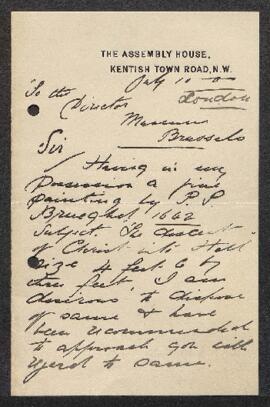 THE ASSEMBLY HOUSE,
KENTISH TOWN ROAD, N.W.
July 10
London
To the
Director
Museum
Brussels
Sir
Having in my
possession a fine
painting by P. P.
Brueghel 1662
Subject. The descent
of Christ into Hell
size 4 feet 6 by
three feet, I am
desirous to dispose
of same & have
been recommended
to approach you with
regard to same.